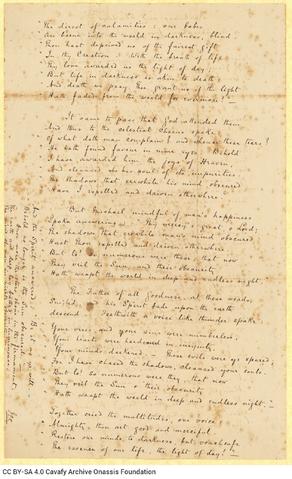 The direst of calamities; our babes
Are borne into the world in darkness, blind
Thou hast deprived us of the fairest gift
In the Creation: With the breath of life
Thy love awarded us the light of day.
But life in darkness is akin to death;
And death we pray Thee grant us if the light
Hath faded from the world for evermore."
It came to pass that God attended them
And thus to the celestial Choirs spake
of what doth man complain? and whence these tears?
He hath found favour in mine eyes. Behold
I have awarded him the joys of Heaven
And cleansed his soul of the impurities
The shadows that erewhile his mind obscured
Have I repelled and driven otherwhere.
But Michael mindful of man's happiness
Spake answering: Thy mercy's great, o Lord;
The shadows that erewhile man's mind obscured
Hast Thou repelled and driven otherwhere
But lo! so numerous were these, that now
They veil the Sun, and their obscurity
Hath wrapt the world in deep and endless night."
The Father of all Goodness, at these words,
Smiled, and his Spirit did upon the earth
descend. Forthwith a voice like thunder spake
Your vices and your sins were numberless,
Your hearts were hardened in iniquity
Your minds declined. These evils were ye spared;
For I have chased the shadows, cleansed your souls.
But lo! so numerous were they, that now
They veil the Sun & their obscurity
Hath wrapt the world in deep and endless night."
Together cried the multitudes, one voice;
Almighty, thou art good and merciful.
Restore our minds to darkness, but vouchsafe
The essence of our life, the light of day!"
And the Spirit answered: Be it so
CC BY-SA 4.0 Cavafy Archive Onassis Foundation